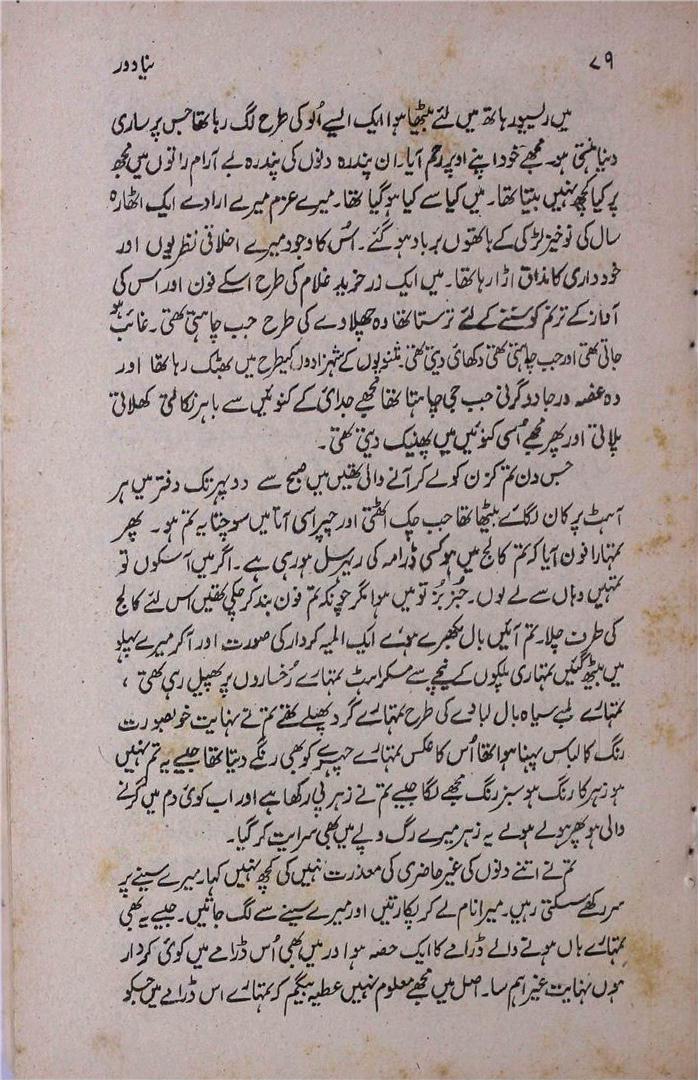 ۷۹ نیا دور
میں رسیور ہاتھ میں لئے بیٹھا ہوا ایک ایسے اُلو کی طرح لگ رہا تھا جس پر ساری
دنیا ہنستی ہو۔ مجھے خود اپنے اوپر رحم آیا۔ ان پندرہ دنوں کی پندرہ بے آرام راتوں میں مجھ
پر کیا کچھ نہیں بیتا تھا۔ میں کیا سے کیا ہو گیا تھا۔ میرے عزم میرے ارادے ایک اٹھارہ
سال کی نوخیز لڑکی کے ہاتھوں برباد ہو گئے۔ اُس کا وجود میرے اخلاقی نظریوں اور
خود داری کا مذاق اڑا رہا تھا۔ میں ایک زر خرید غلام کی طرح اسکے فون اور اس کی
آواز کے ترنم کو سننے کے لئے ترستا تھا وہ چھلاوے کی طرح جب چاہتی تھی۔ غائب ہو
جاتی تھی اور جب چاہتی تھی دکھائی دیتی تھی مثنویوں کے شہزادوں کیطرح میں بھٹک رہا تھا اور
وہ غصہ ور جادوگرنی جب جی چاہتا تھا مجھے جدائی کے کنوئیں سے باہر نکالتی کھلاتی
پلاتی اور پھر مجھے اُسی کنوئیں میں پھینک دیتی تھی۔
جس دن تم کزن کو لے کر آنے والی تھیں میں صبح سے دوپہر تک دفتر میں ہر
آہٹ پر کان لگائے بیٹھا تھا جب چک اٹھتی اور چپراسی آتا میں سوچتا یہ تم ہو۔ پھر
تمہارا فون آیا کہ تم کالج میں ہو کسی ڈرامہ کی ریہرسل ہو رہی ہے۔ اگر میں آ سکوں تو
تمہیں وہاں سے لے لوں۔ جُز بُز تو میں ہوا مگر چونکہ تم فون بند کر چکی تھیں اس لئے کالج
کی طرف چلا۔ تم آئیں بال بکھرے ہوئے ایک المیہ کردار کی صورت اور آ کر میرے پہلو
میں بیٹھ گئیں تمہاری پلکوں کے نیچے سے مسکراہٹ تمہارے رُخساروں پر پھیل رہی تھی ،
تمہارے لمبے سیاہ بال لبادے کی طرح تمہارے گرد پھیلے تھے تم نے نہایت خوبصورت
رنگ کا لباس پہنا ہوا تھا اُس کا عکس تمہارے چہرے کو بھی رنگے دیتا تھا جیسے یہ تم نہیں
ہو زہر کا رنگ ہو سبز رنگ مجھے لگا جیسے تم نے زہر پی رکھا ہے اور اب کوئی دم میں گرنے
والی ہو پھر ہولے ہولے یہ زہر میرے رگ و پے میں بھی سرایت کر گیا۔
تم نے اتنے دنوں کی غیر حاضری کی معذرت نہیں کی کچھ نہیں کہا۔ میرے سینے پر
سر رکھے سسکتی رہیں۔ میرا نام لے کر پکارتیں اور میرے سینے سے لگ جاتیں۔ جیسے یہ بھی
تمہارے ہاں ہونے والے ڈرامے کا ایک حصہ ہو اور میں بھی اُس ڈرامے میں کوئی کردار
ہوں نہایت غیر اہم سا۔ اصل میں مجھے معلوم نہیں عطیہ بیگم کہ تمہارے اس ڈرامے میں جسکو